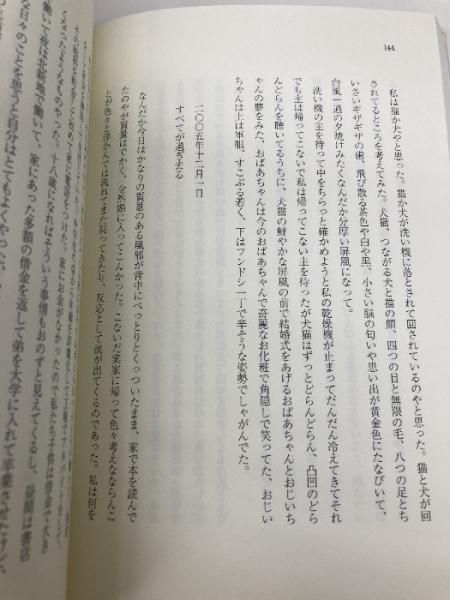 144
私は猫か犬やと思った。猫か犬が洗い機に落とされて回されているのやと思った。猫と犬が回
されてるところを考えてみた。犬猫、つながる犬と猫の顔、四つの目と無限の毛、八つの足とち
いさいギザギザの歯、飛び散る茶色や白や黒、小さい脳の匂いや思い出が黄金色にたなびいて、
台風一過の夕焼けみたくなんだか分厚い屏風になって。
洗い機の主を待って中をもらっと確かめようと私の乾燥機が止まってだんだん冷えてきてそれ
でも主は帰ってこないで私は帰ってこない主を待ったが犬猫はずっとどらんどらん、凸凹のどら
んどらんを聴いてるうちに、犬猫の鮮やかな屏風の前で結婚式をあげるおばあちゃんとおじいち
ゃんの夢をみた、おばあちゃんは今のおばあちゃんで奇麗なお化粧で角隠しで笑ってた、おじい
ちゃんは上は軍服、すこぶる若く、下はフンドシ一丁で辛そうな姿勢でしゃがんでた。
二〇〇五年十二月一日
すべてが過ぎ去る
なんだか今日はかなりの質量のある風邪が背中にべっとりとくっついたまま、家で本を読んで
たのやが質量はでかく、全然頭に入ってこんかった。こないだ実家に帰って色々考えなならんこ
とが色々と浮かんでは流れてまた戻ってきたり、反応として涙が出てくるのであった。私は何を
十八歳になればそういう事情もおのずと見えてくるし、昼間は書店
働いて夜は北新地で働いて、家にあった多額の借金を返して弟を大学に入れて卒業させた
な日々のことを思うと自分はとてもよくやった